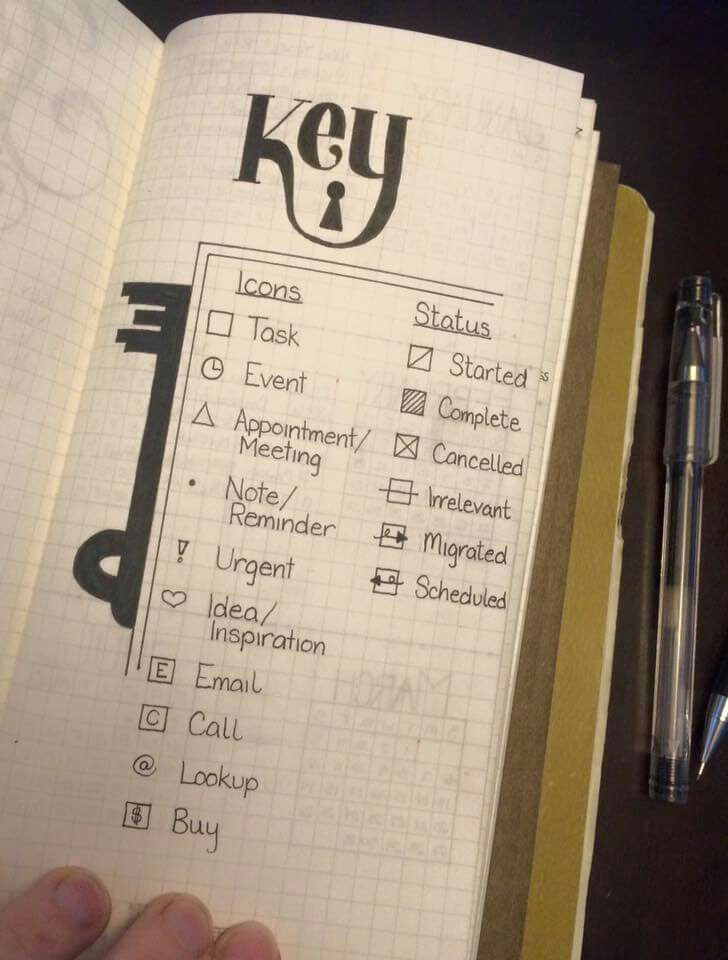 Key
Icons
Task
Event
Appointment/
Meeting
Note/
Reminder
! Urgent
Idea/
Inspiration
E Email
C Call
@ Lookup
$ Buy
Status
Started
Complete
Cancelled
Irrelevant
Migrated
Scheduled
MARCH